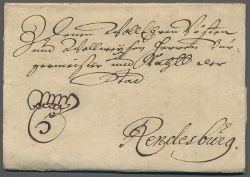 Denen Woll Ehren Vesten
und Wollweysen Herren Bur-
germeister und Raht der
Stad
Rendesburg.